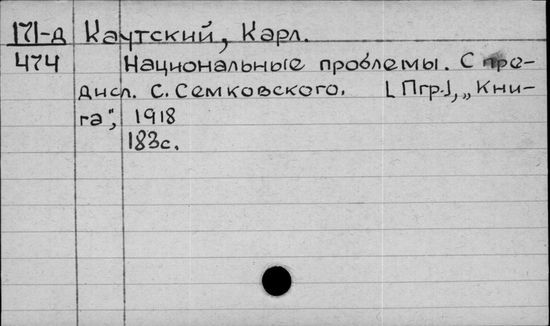 171-д Каутский, Карл.
474 Национальные проблемы. С пре-
дисл. С. Семковского. [Пгр.], „Кни-
га", 1918
183с.